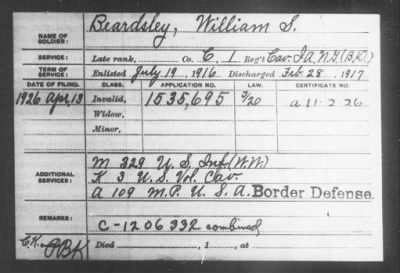 Beardsley, William S.
NAME OF SOLDIER:
SERVICE: Late rank, Co. C, 1 Reg't Cav. IA. N.G. (B.D.)
TERM OF SERVICE: Enlisted July 19, 1916 Discharged Feb. 28, 1917
DATE OF FILING. CLASS. APPLICATION NO. LAW. CERTIFICATE NO.
1926 Apr. 13 Invalid, 1535,695 3/20 a 11-2-26
Widow,
Minor,
M 329 U.S. Inf. (W.W.)
ADDITIONAL SERVICES: K 3 U.S. Vol. Cav.
a 109 M.P. U.S.A. Border Defense.
REMARKS: C-1206332 combined
Died , 1 , at